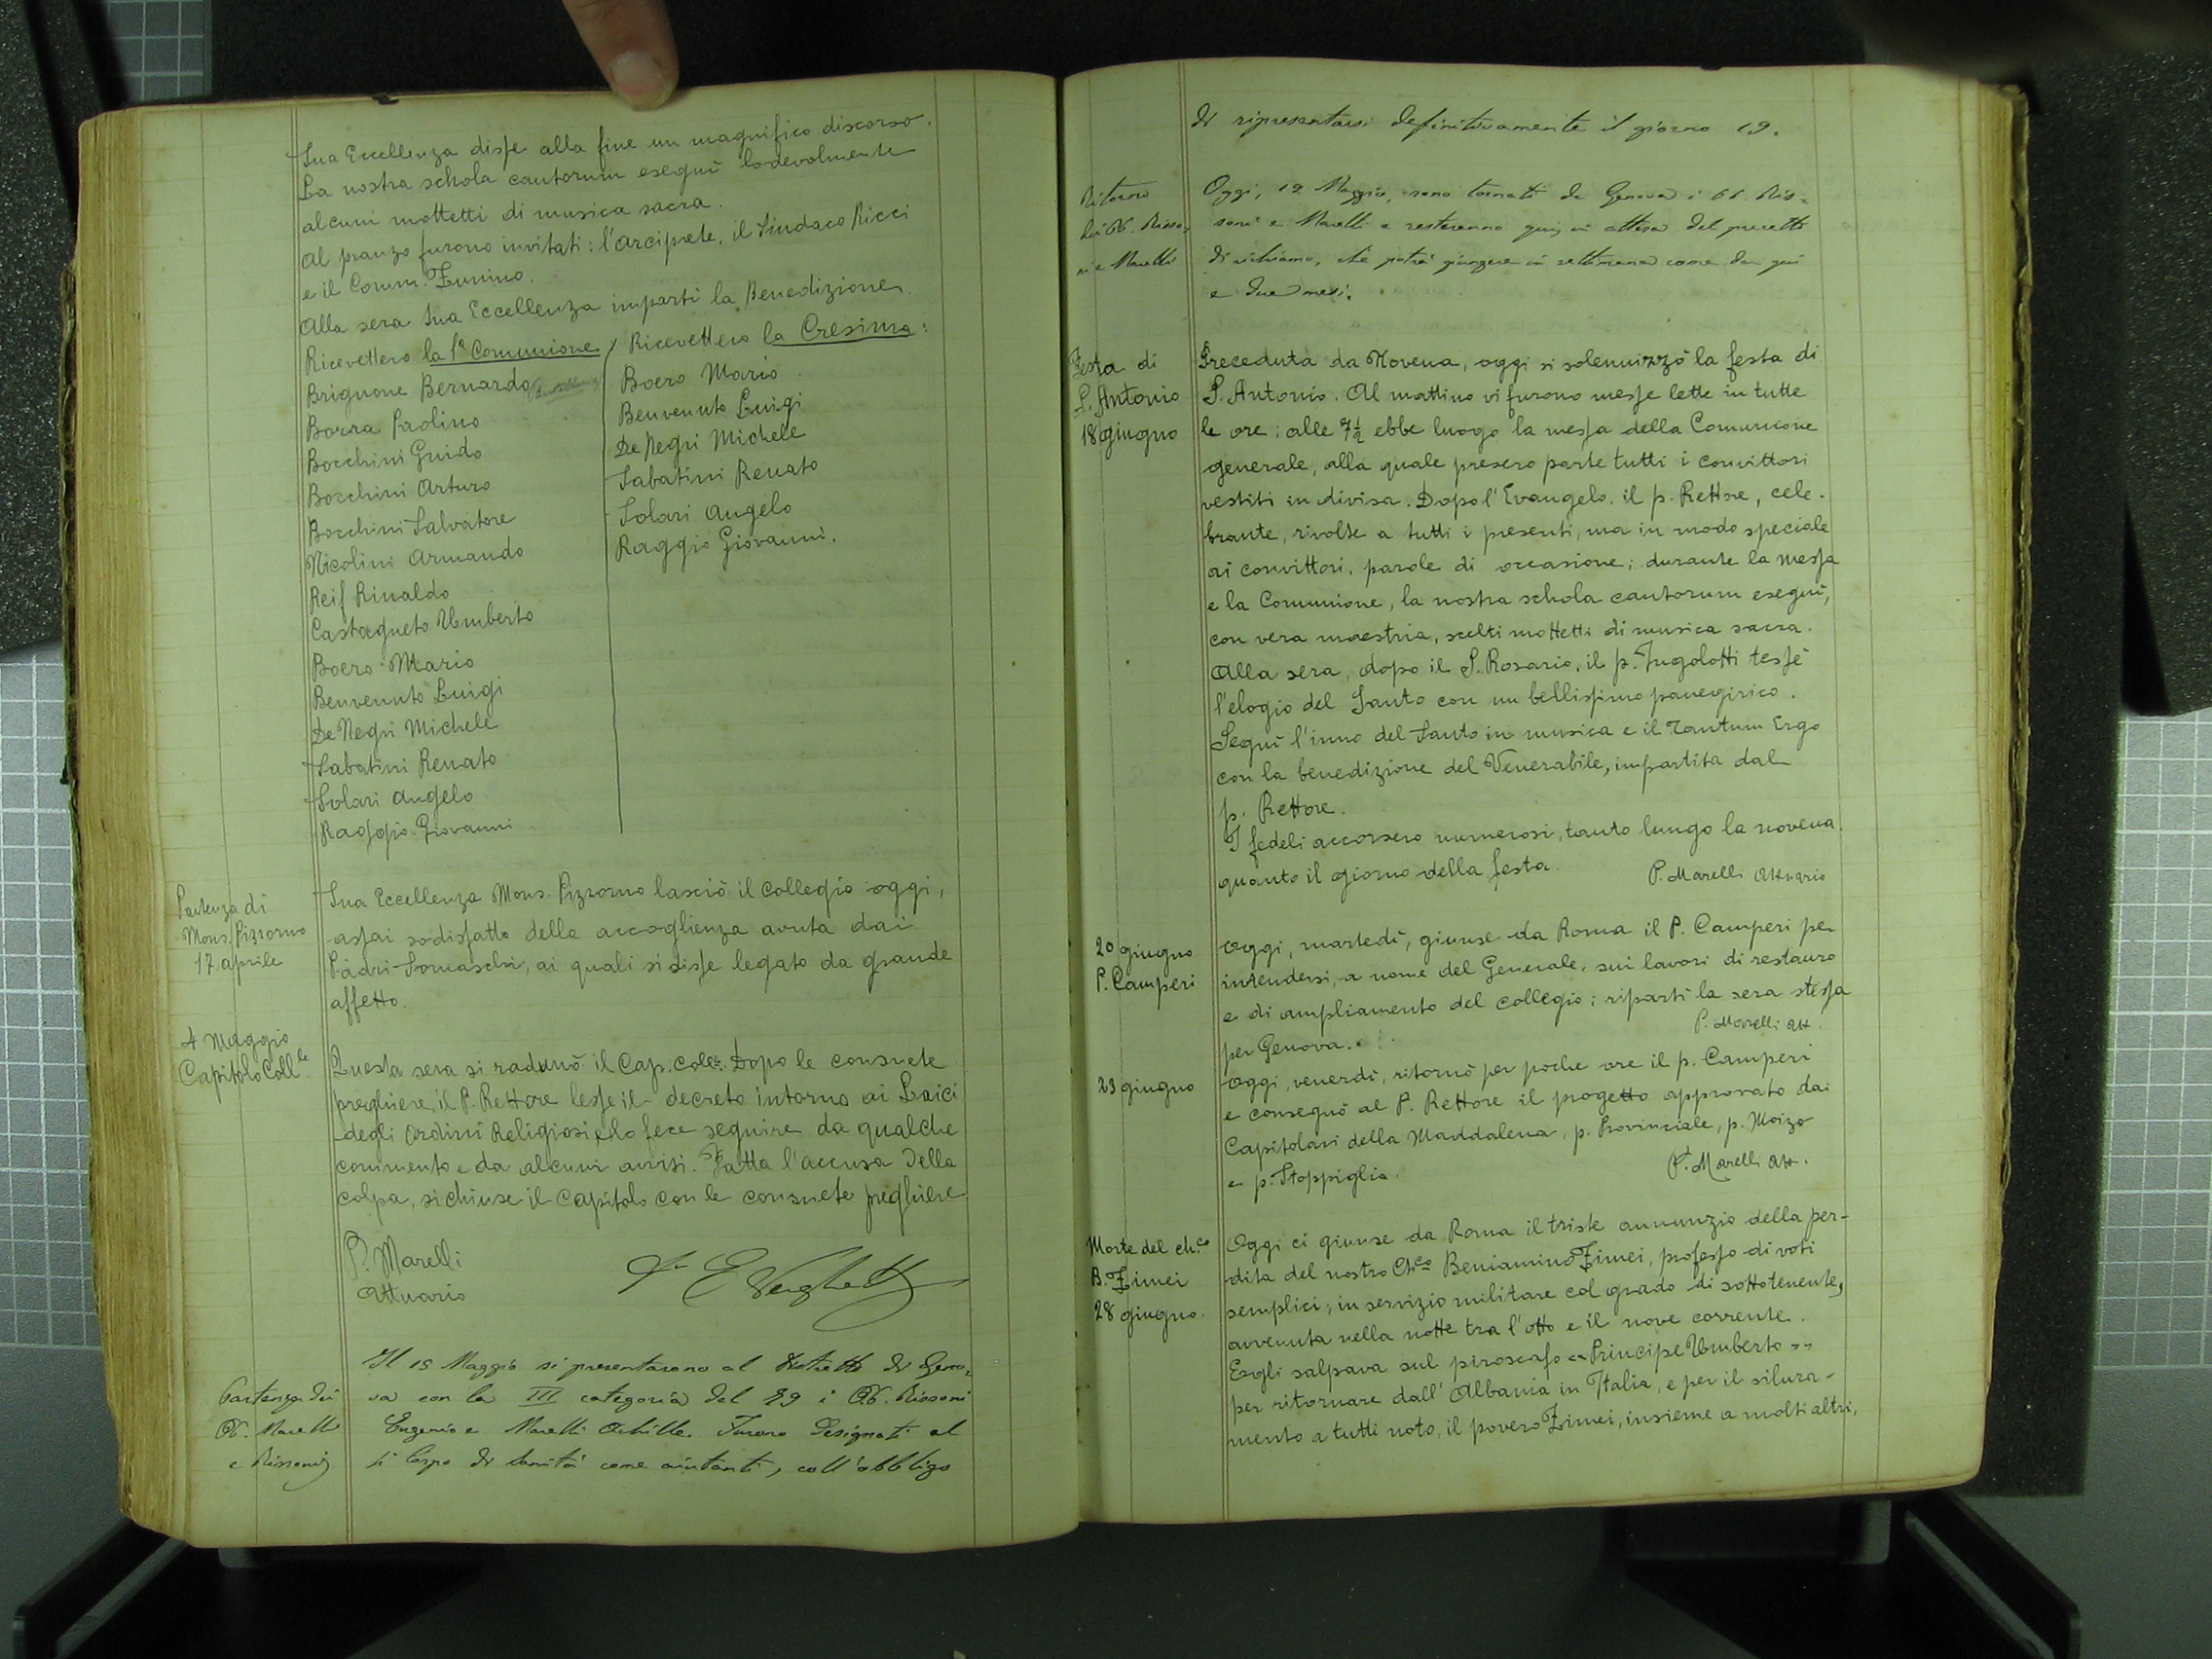 Sua Eccellenza disse alla fine un magnifico discorso.
La nostra schola cantorum eseguì lodevolmente
alcuni mottetti di musica sacra.
Al pranzo furono invitati: l'Arciprete, il Sindaco Ricci
e il Comm. Zunino.
Alla sera Sua Eccellenza impartì la Benedizione.
Ricevettero la 1ª Comunione
Brignone Bernardo
Borra Paolino
Bocchini Guido
Bocchini Arturo
Bocchini Salvatore
Nicolini Armando
Reif Rinaldo
Castagneto Umberto
Boero Mario
Benvenuto Luigi
De Negri Michele
Sabatini Renato
Solari Angelo
Raggio Giovanni
Ricevettero la Cresima:
Boero Mario
Benvenuto Luigi
De Negri Michele
Sabatini Renato
Solari Angelo
Raggio Giovanni.
Partenza di
Mons. Pizzorno
17 aprile
Sua Eccellenza Mons. Pizzorno lasciò il collegio oggi,
assai sodisfatto della accoglienza avuta dai
Padri Somaschi, ai quali si disse legato da grande
affetto.
4 Maggio
Capitolo Coll.le
Questa sera si radunò il Cap. Coll.le Dopo le consuete
preghiere, il P. Rettore lesse il decreto intorno ai Laici
degli Ordini Religiosi e lo fece seguire da qualche
commento e da alcuni avvisi. Fatta l'accusa della
colpa, si chiuse il Capitolo con le consuete preghiere
P. Marelli
Attuario
Partenza dei
CC. Marelli
e Rissoni
Il 15 Maggio si presentarono al Distretto di Geno-
va con la III categoria del 89 i CC. Rissoni
Eugenio e Marelli Achille. Furono designati al
Corpo di Sanità come aiutanti, coll'obbligo
di ripresentarsi definitivamente il giorno 19.
Ritorno
dei CC. Risso-
ni e Marelli
Oggi, 19 Maggio, sono tornati da Genova i CC. Ris-
soni e Marelli e resteranno qui, in attesa del precetto
di richiamo, che potrà giungere in settimana come da qui
a due mesi.
Festa di
S. Antonio
18 giugno
Preceduta da Novena, oggi si solennizzò la festa di
S. Antonio. Al mattino vi furono messe lette in tutte
le ore: alle 7½ ebbe luogo la messa della Comunione
generale, alla quale presero parte tutti i convittori
vestiti in divisa. Dopo l'Evangelo, il p. Rettore, cele-
brante, rivolse a tutti i presenti, ma in modo speciale
ai convittori, parole di occasione; durante la messa
e la Comunione, la nostra schola cantorum eseguì,
con vera maestria, scelti mottetti di musica sacra.
Alla sera, dopo il S. Rosario, il p. Ingolotti tessè
l'elogio del Santo con un bellissimo panegirico.
Seguì l'inno del Santo in musica e il Tantum Ergo
con la benedizione del Venerabile, impartita dal
p. Rettore.
I fedeli accorsero numerosi, tanto lungo la novena
quanto il giorno della festa.
P. Marelli Attuario
20 giugno
P. Camperi
Oggi, martedì, giunse da Roma il P. Camperi per
intendersi, a nome del Generale, sui lavori di restauro
e di ampliamento del collegio; ripartì la sera stessa
per Genova.
P. Marelli Att.
23 giugno
Oggi, venerdì, ritornò per poche ore il p. Camperi
e consegnò al P. Rettore il progetto approvato dai
Capitolari della Maddalena, p. Provinciale, p. Moizo
e p. Stoppiglia.
P. Marelli Att.
Morte del ch.co
B. Zimei
28 giugno.
Oggi ci giunse da Roma il triste annunzio della per-
dita del nostro Ch.co Beniamino Zimei, professo di voti
semplici, in servizio militare col grado di sottotenente,
avvenuta nella notte tra l'otto e il nove corrente.
Egli salpava sul piroscafo «Principe Umberto»
per ritornare dall'Albania in Italia, e per il silura-
mento a tutti noto, il povero Zimei, insieme a molti altri,